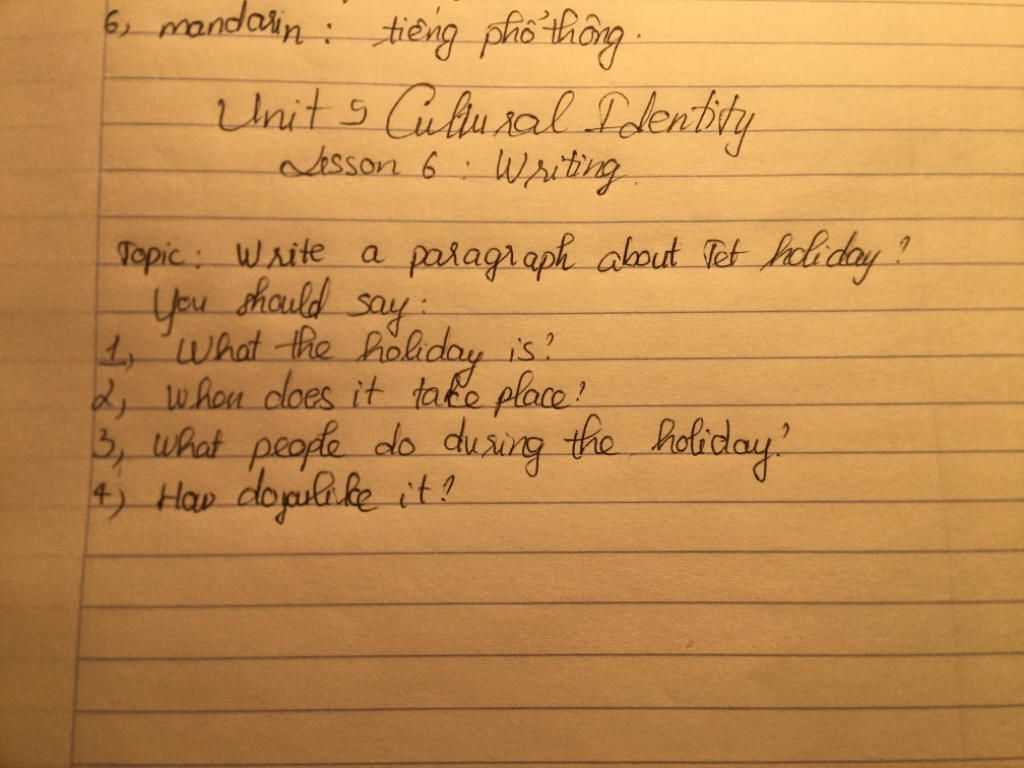 6, mandarin : tiếng phổ thông.
Unit 5 Cultural Identity
Lesson 6 : Writing
Topic: Write a paragraph about Tet holiday?
You should say:
1, What the holiday is?
2, When does it take place?
3, What people do during the holiday?
4, How do you like it?